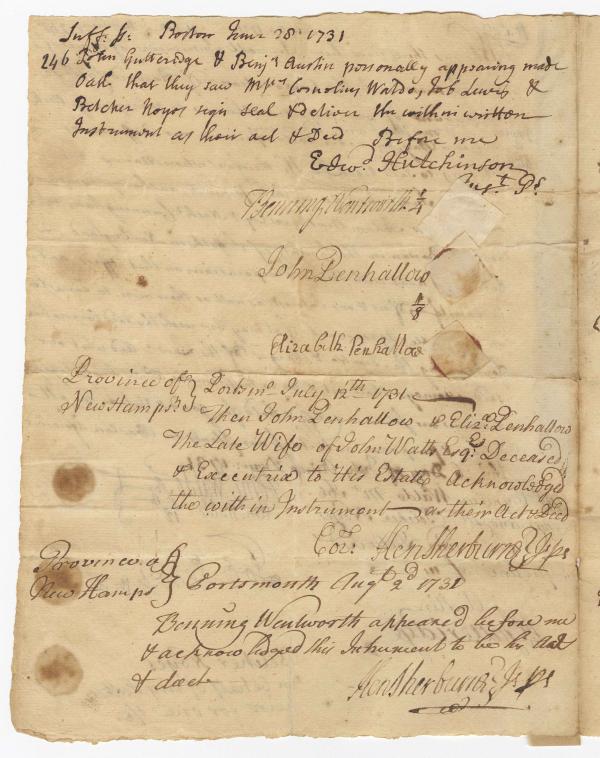 Suff: ss. Boston June 28. 1731
246 John Gutteridge & Benjª Austin personally appearing made
Oath that they saw Mʳˢ Cornelius Waldo, Job Lewis &
Belcher Noyes sign seal & deliver the within written
Instrument as their act & Deed Before me
Edwᵈ Hutchinson
Justᵗ Ps
Benning Wentworth ¼
John Penhallow
⅛
Elizabeth Penhallow
Province of } Portsmº July 12ᵗʰ 1731
New Hampsʳᵉ } Then John Penhallow & Elizª Penhallow
The Late Wife of John Watts Esqʳ Deceased
& Executrix to His Estate Acknowledged
the within Instrument as their Act & Deed
Corª: Hen Sherburne Js pe
Province of }
New Hamps } Portsmouth Augᵗ 2ᵈ 1731
Benning Wentworth appeared before me
& acknowledged this Instrument to be his act
& deed
Hen Sherburne Js pe